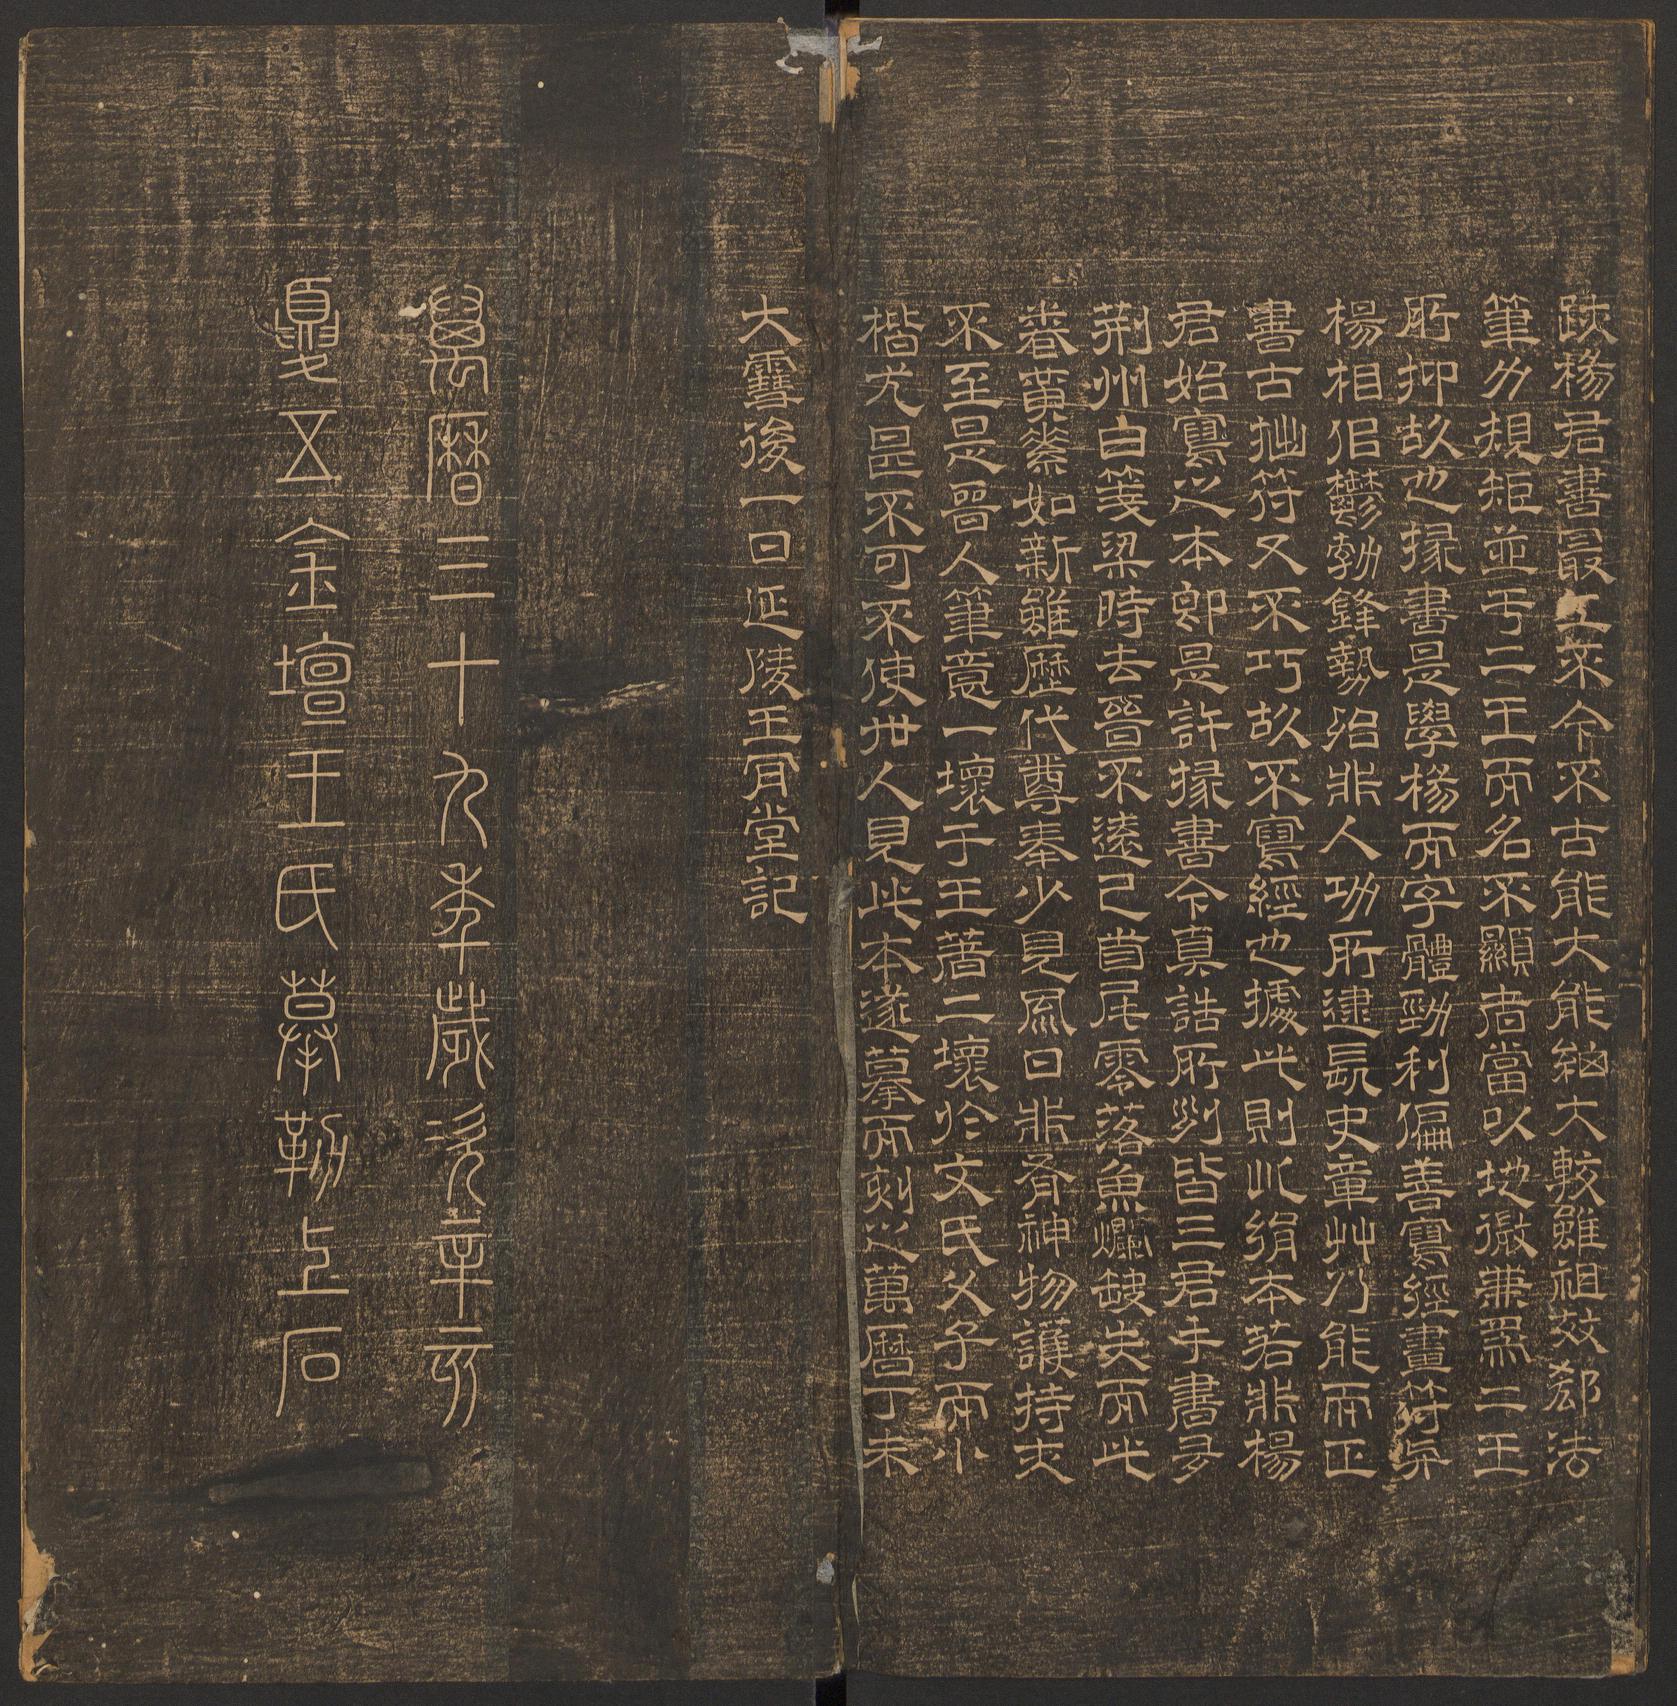 跋楊君書最工不今不古能大能細大較雖祖效郗法
筆力規矩並于二王而名不顯者當以地微兼為二王
所抑故也掾書是學楊而字體勁利偏善寫經畫符與
楊相佀鬱勃鋒勢殆非人功所逮長史章艸乃能而正
書古拙符又不巧故不寫經也據此則此絹本若非楊
君始寫之本即是許掾書今真誥所列皆三君手書多
荊州白箋梁時去晉不遠已首尾零落魚爛缺失而此
卷黃素如新雖歷代尊奉少見風日非有神物護持夫
不至是晉人筆意一壞于王著二壞於文氏父子而小
楷尤甚不可不使世人見此本遂摹而刻之萬曆丁未
大雪後一日延陵王肎堂記
萬曆三十九年歲次辛亥
夏五金壇王氏摹勒上石